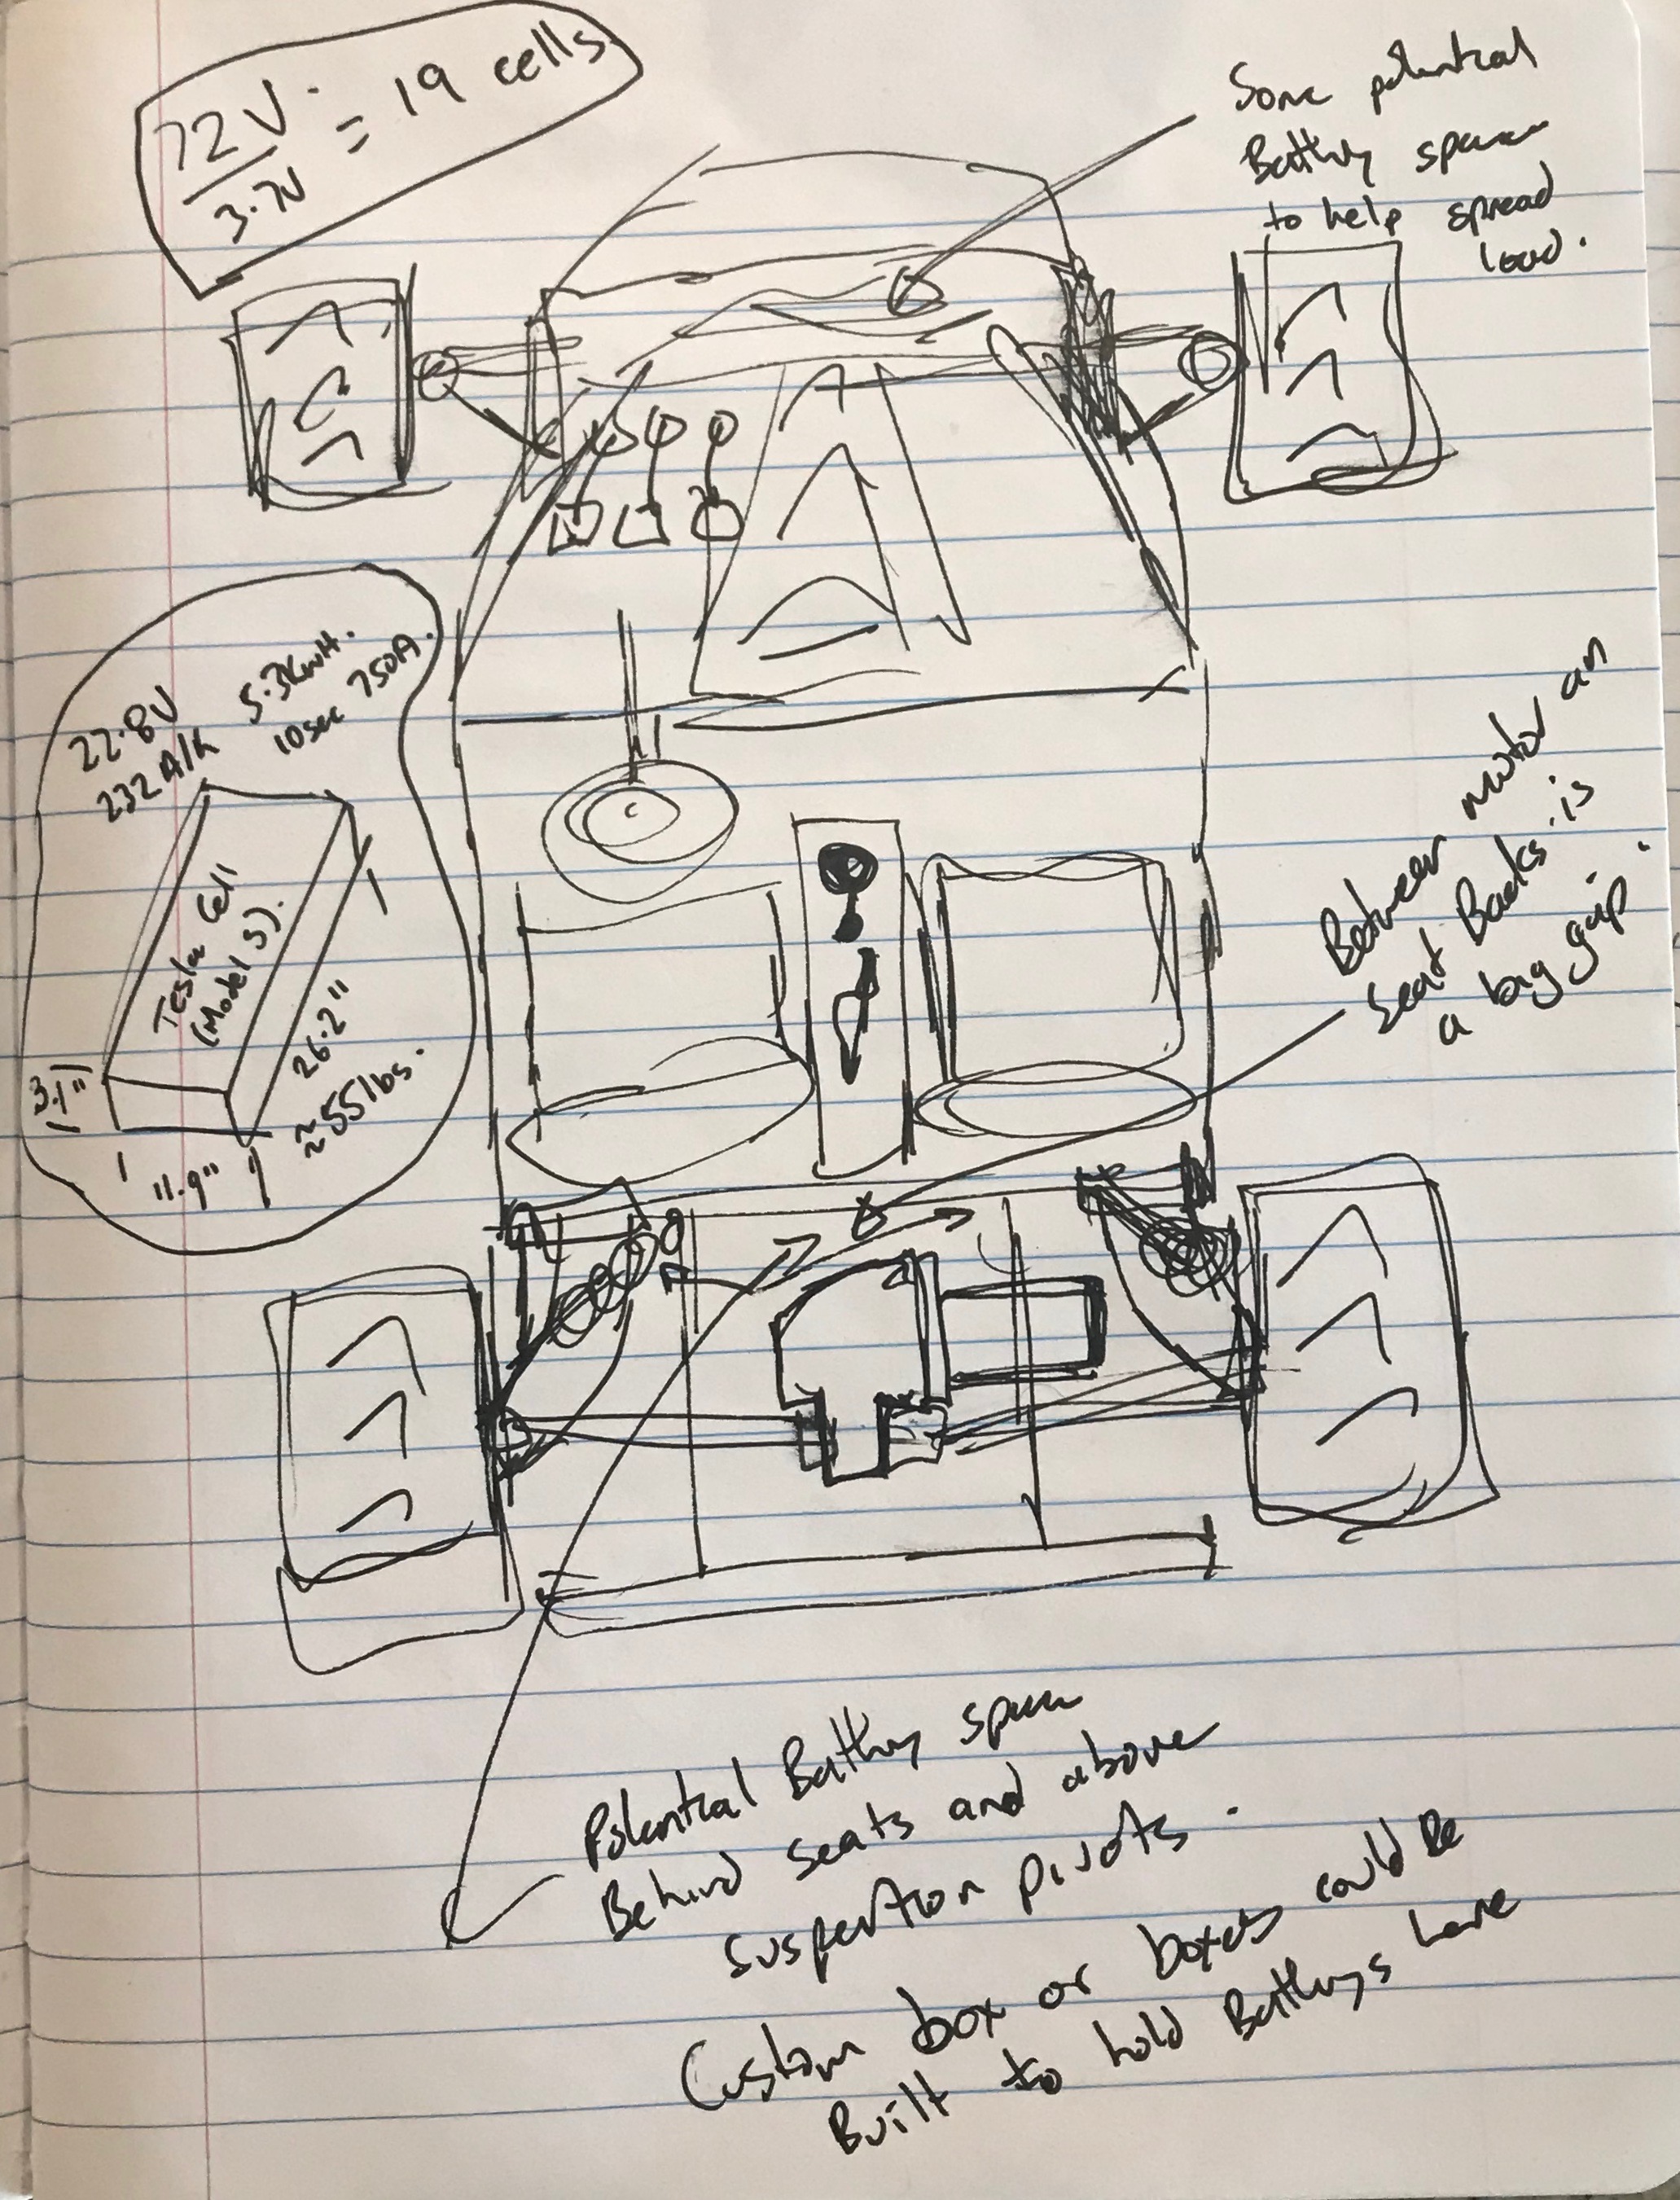 72V = 19 cells
3.7V
Some potential
Battery space
to help spread
load.
22.8V 5.3KwH.
232 A/h 10sec 750A.
Tesla Cell
(Model S).
3.1"
11.9"
26.2"
≈55lbs.
Between motor an
Seat Backs is
a big gap.
Potential Battery space
Behind seats and above
suspention pivots.
Custom box or boxes could Be
Built to hold Batterys here